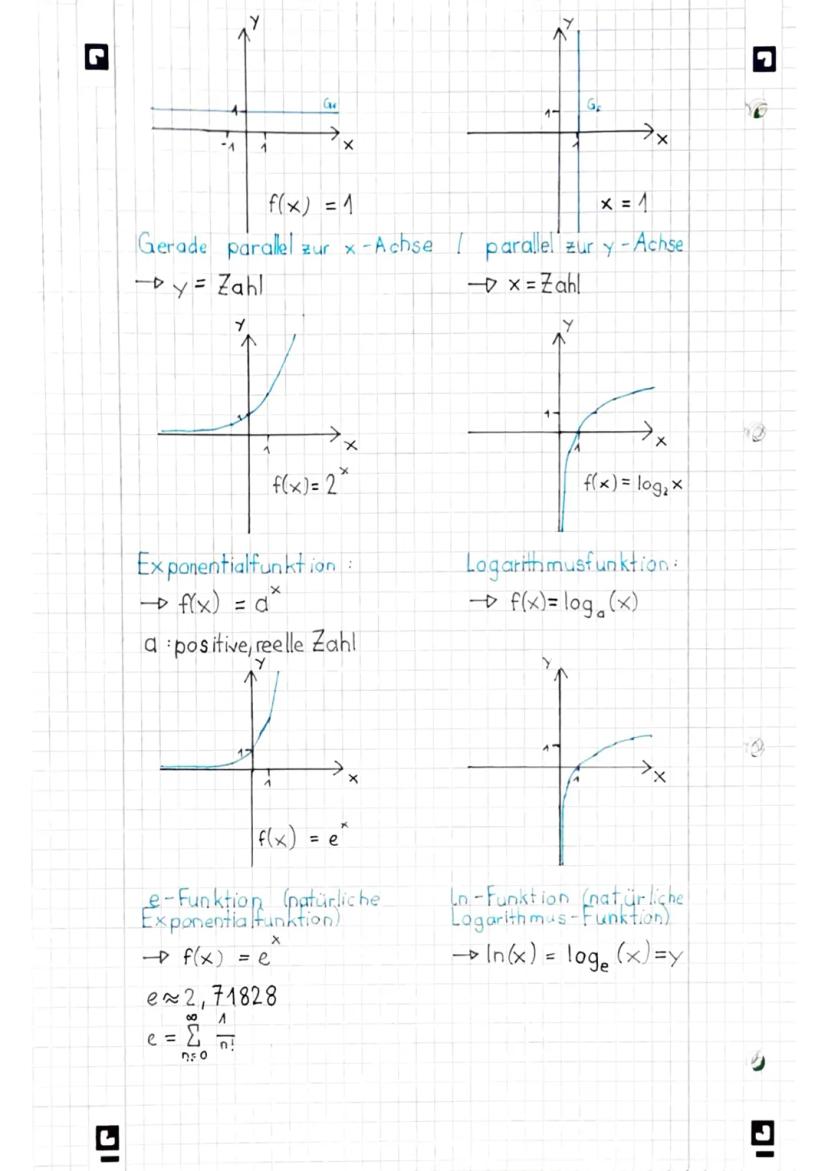 y
y
1
Gf
1
Gf
-1
1
x
1
x
f(x) = 1
x = 1
Gerade parallel zur x-Achse / parallel zur y-Achse
→ y = Zahl
→ x = Zahl
y
y
1
1
1
x
1
x
f(x) = 2^x
f(x) = log₂ x
Exponentialfunktion :
Logarithmusfunktion :
→ f(x) = a^x
→ f(x) = logₐ(x)
a : positive, reelle Zahl
y
y
1
1
1
x
1
x
f(x) = e^x
e-Funktion (natürliche
Exponentialfunktion)
ln-Funktion (natürliche
Logarithmus-Funktion)
→ f(x) = e^x
→ ln(x) = logₑ (x) = y
e ≈ 2,71828
e = ∞ Σ n=0 1/n!